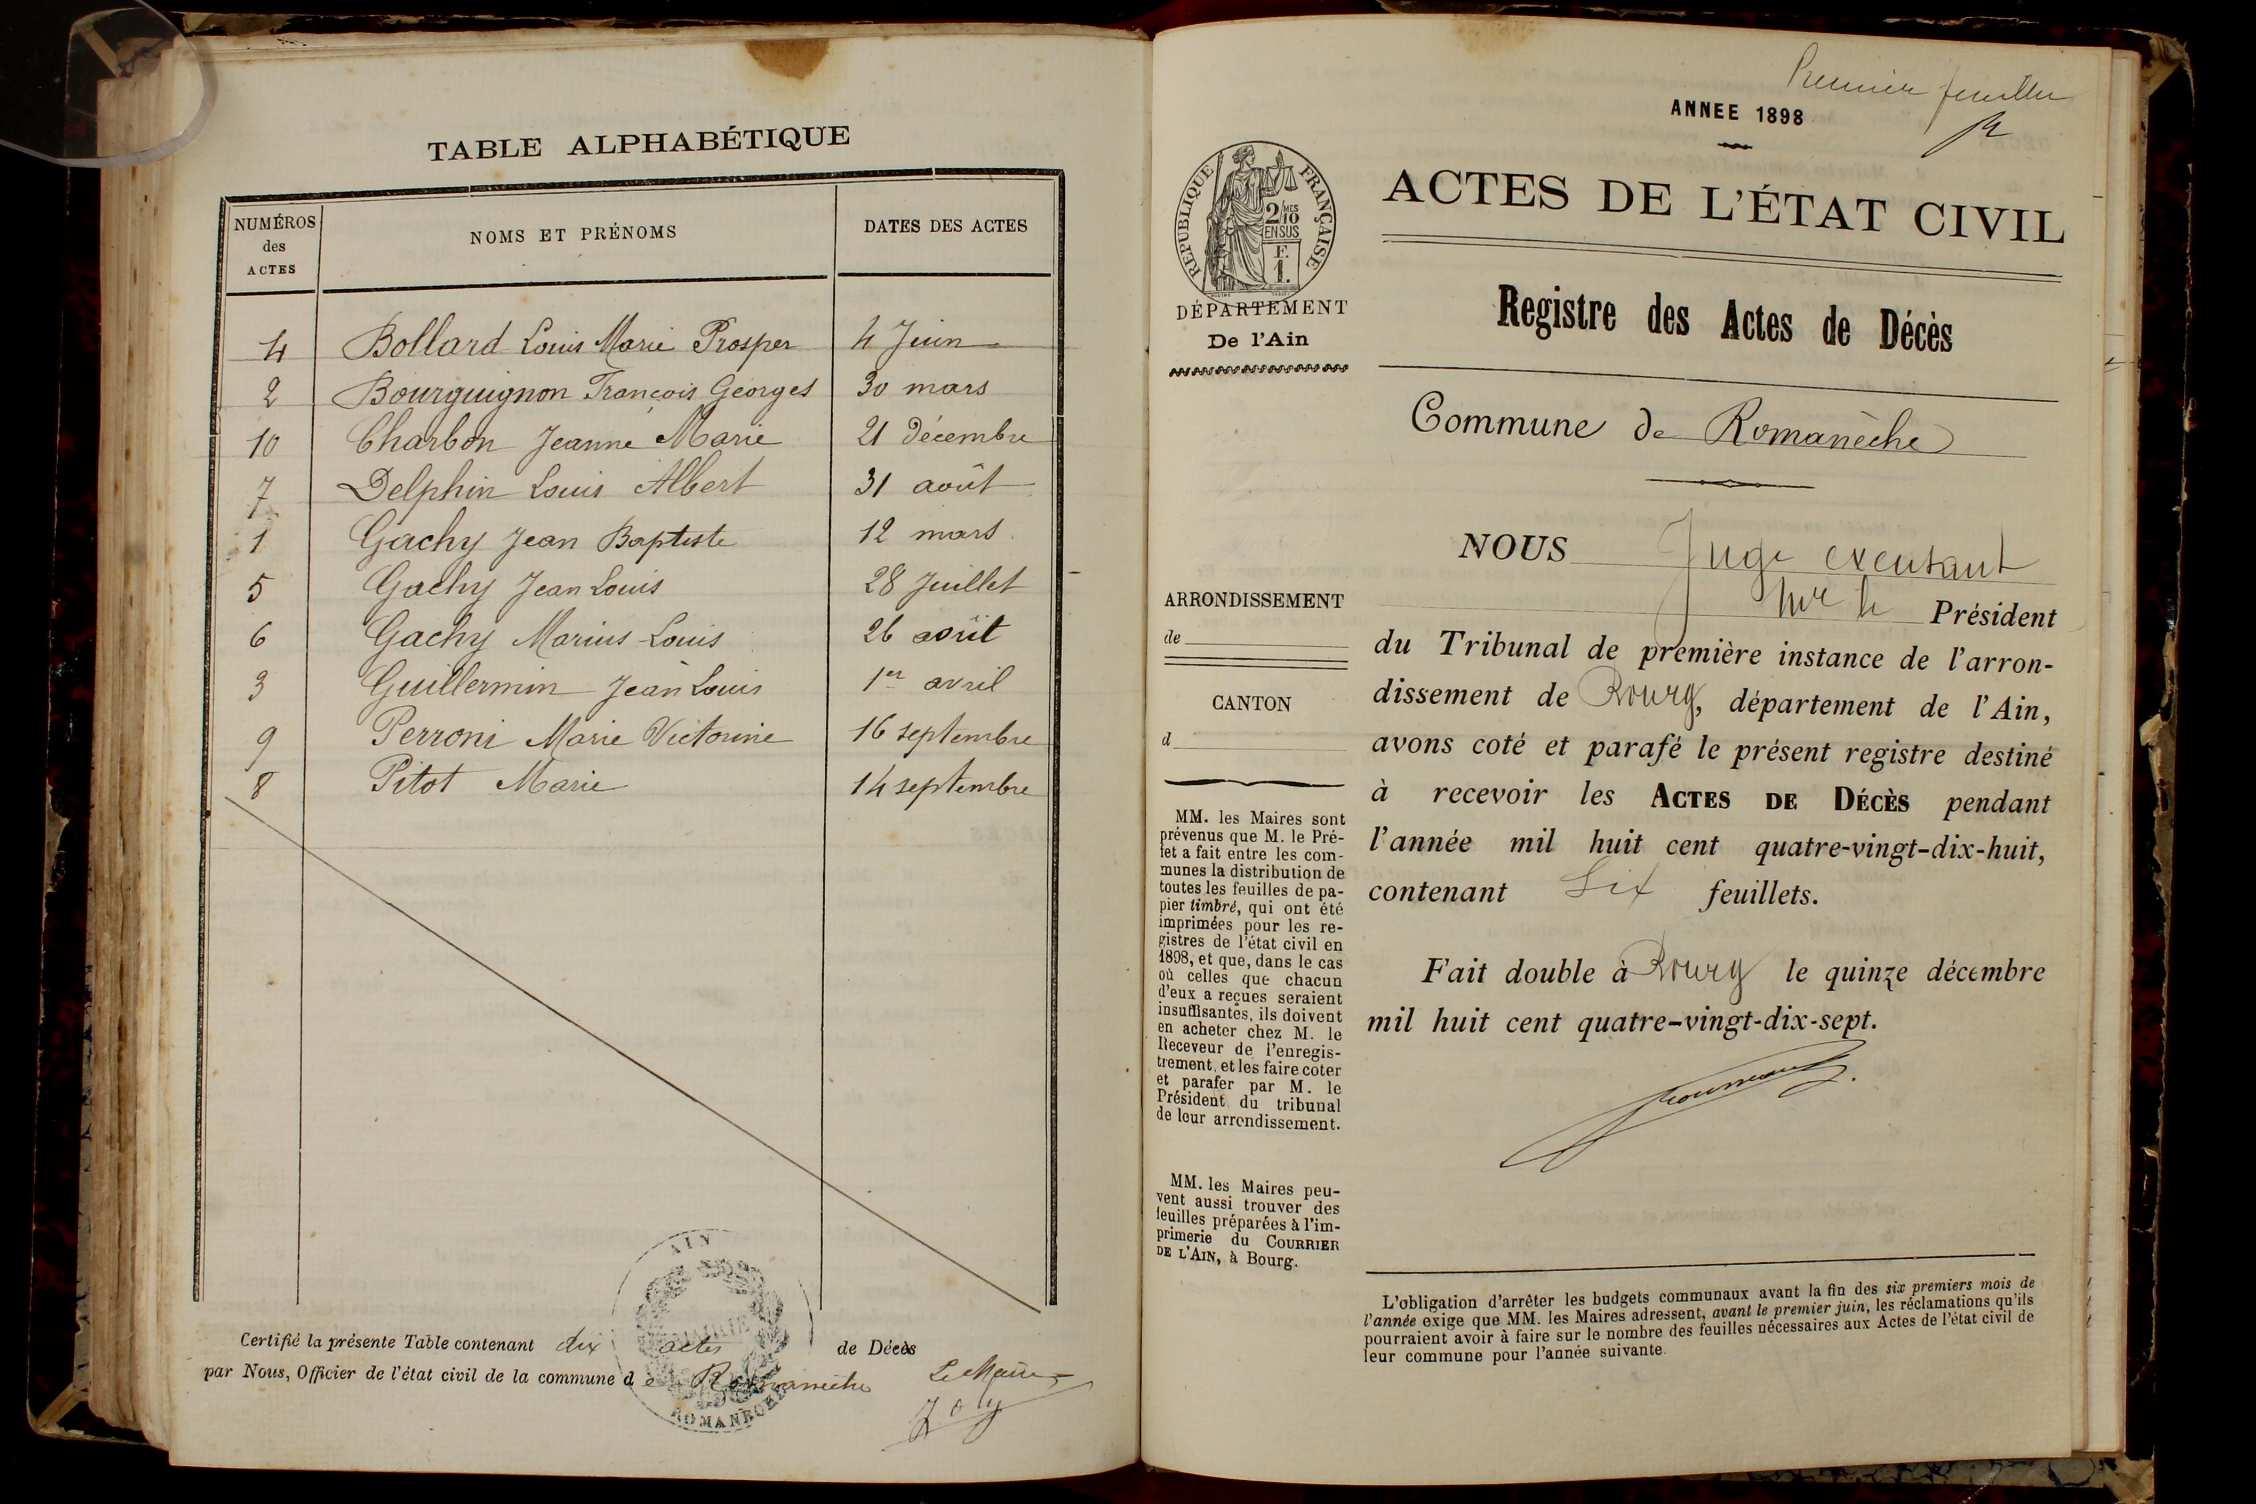 TABLE ALPHABÉTIQUE
NUMÉROS des ACTES
NOMS ET PRÉNOMS
DATES DES ACTES
4 Bollard Louis Marie Prosper 4 Juin
2 Bourguignon François Georges 30 mars
10 Charbon Jeanne Marie 21 décembre
7 Delphin Louis Albert 31 août
1 Gachy Jean Baptiste 12 mars
5 Gachy Jean Louis 28 Juillet
6 Gachy Marius Louis 26 août
3 Guillermin Jean Louis 1er avril
9 Perroni Marie Victorine 16 septembre
8 Pitot Marie 14 septembre
AIN
MAIRIE
ROMANÈCHE
Certifié la présente Table contenant dix actes de Décès
par Nous, Officier de l'état civil de la commune de Romanèche
Le Maire
Joly
Premier feuillet
ANNEE 1898
RÉPUBLIQUE FRANÇAISE
2/10 MES
EN SUS
F.
1.
DÉPARTEMENT
De l'Ain
ACTES DE L'ÉTAT CIVIL
Registre des Actes de Décès
Commune de Romanèche
ARRONDISSEMENT
de
CANTON
d
MM. les Maires sont
prévenus que M. le Pré-
fet a fait entre les com-
munes la distribution de
toutes les feuilles de pa-
pier timbré, qui ont été
imprimées pour les re-
gistres de l'état civil en
1898, et que, dans le cas
où celles que chacun
d'eux a reçues seraient
insuffisantes, ils doivent
en acheter chez M. le
Receveur de l'enregis-
trement, et les faire coter
et parafer par M. le
Président du tribunal
de leur arrondissement.
MM. les Maires peu-
vent aussi trouver des
feuilles préparées à l'im-
primerie du COURRIER
DE L'AIN, à Bourg.
NOUS Juge
Président
du Tribunal de première instance de l'arron-
dissement de Bourg, département de l'Ain,
avons coté et parafé le présent registre destiné
à recevoir les ACTES DE DÉCÈS pendant
l'année mil huit cent quatre-vingt-dix-huit,
contenant Six feuillets.
Fait double à Bourg le quinze décembre
mil huit cent quatre-vingt-dix-sept.
L'obligation d'arrêter les budgets communaux avant la fin des six premiers mois de
l'année exige que MM. les Maires adressent, avant le premier juin, les réclamations qu'ils
pourraient avoir à faire sur le nombre des feuilles nécessaires aux Actes de l'état civil de
leur commune pour l'année suivante.